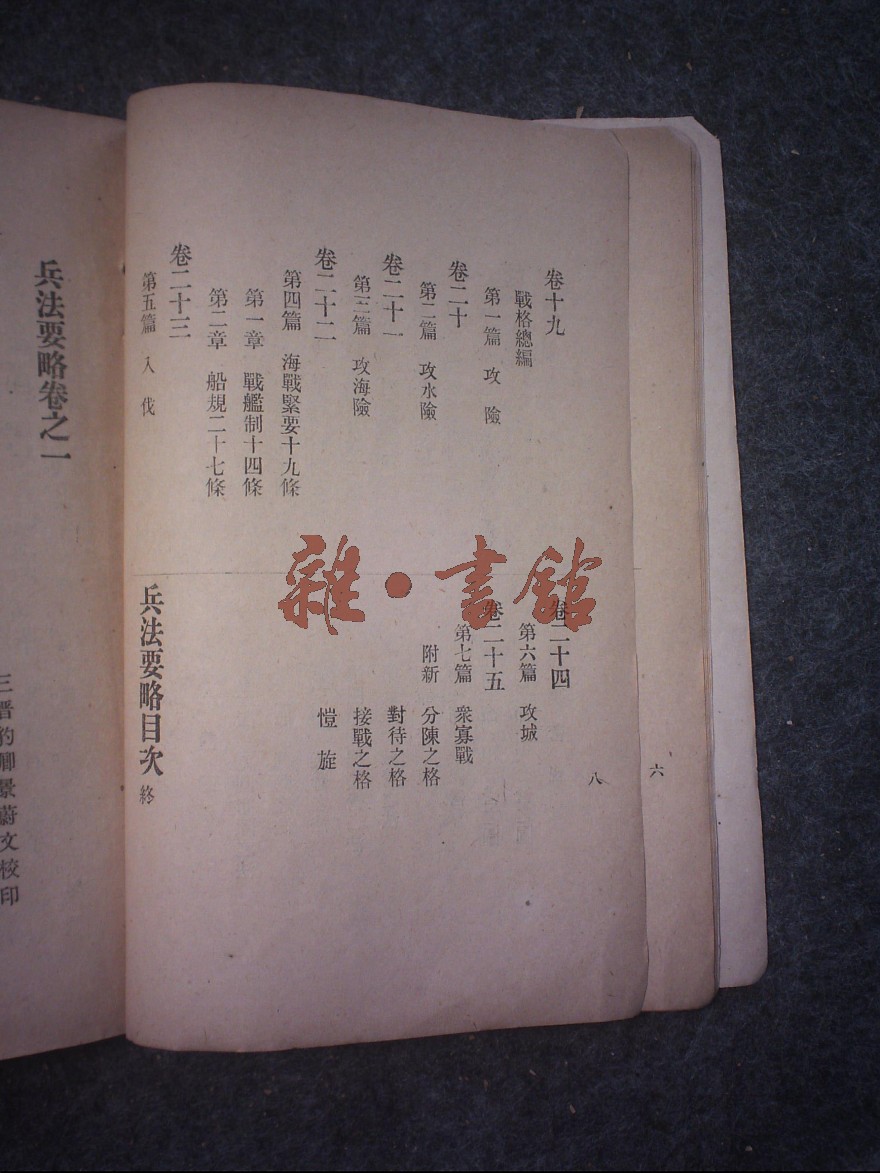 卷十九
戰格總編
第一篇 攻 險
卷二十
第二篇 攻水險
卷二十一
第三篇 攻海險
卷二十二
第四篇 海戰緊要十九條
第一章 戰艦制十四條
第二章 船規二十七條
卷二十三
第五篇 入 伐
卷二十四
第六篇 攻城
卷二十五
第七篇 衆寡戰
附新 分陳之格
對待之格
接戰之格
愷 旋
兵法要略目次 終
八
六
兵法要略卷之一
三晋豹卿景蔚文校印
雜·書館